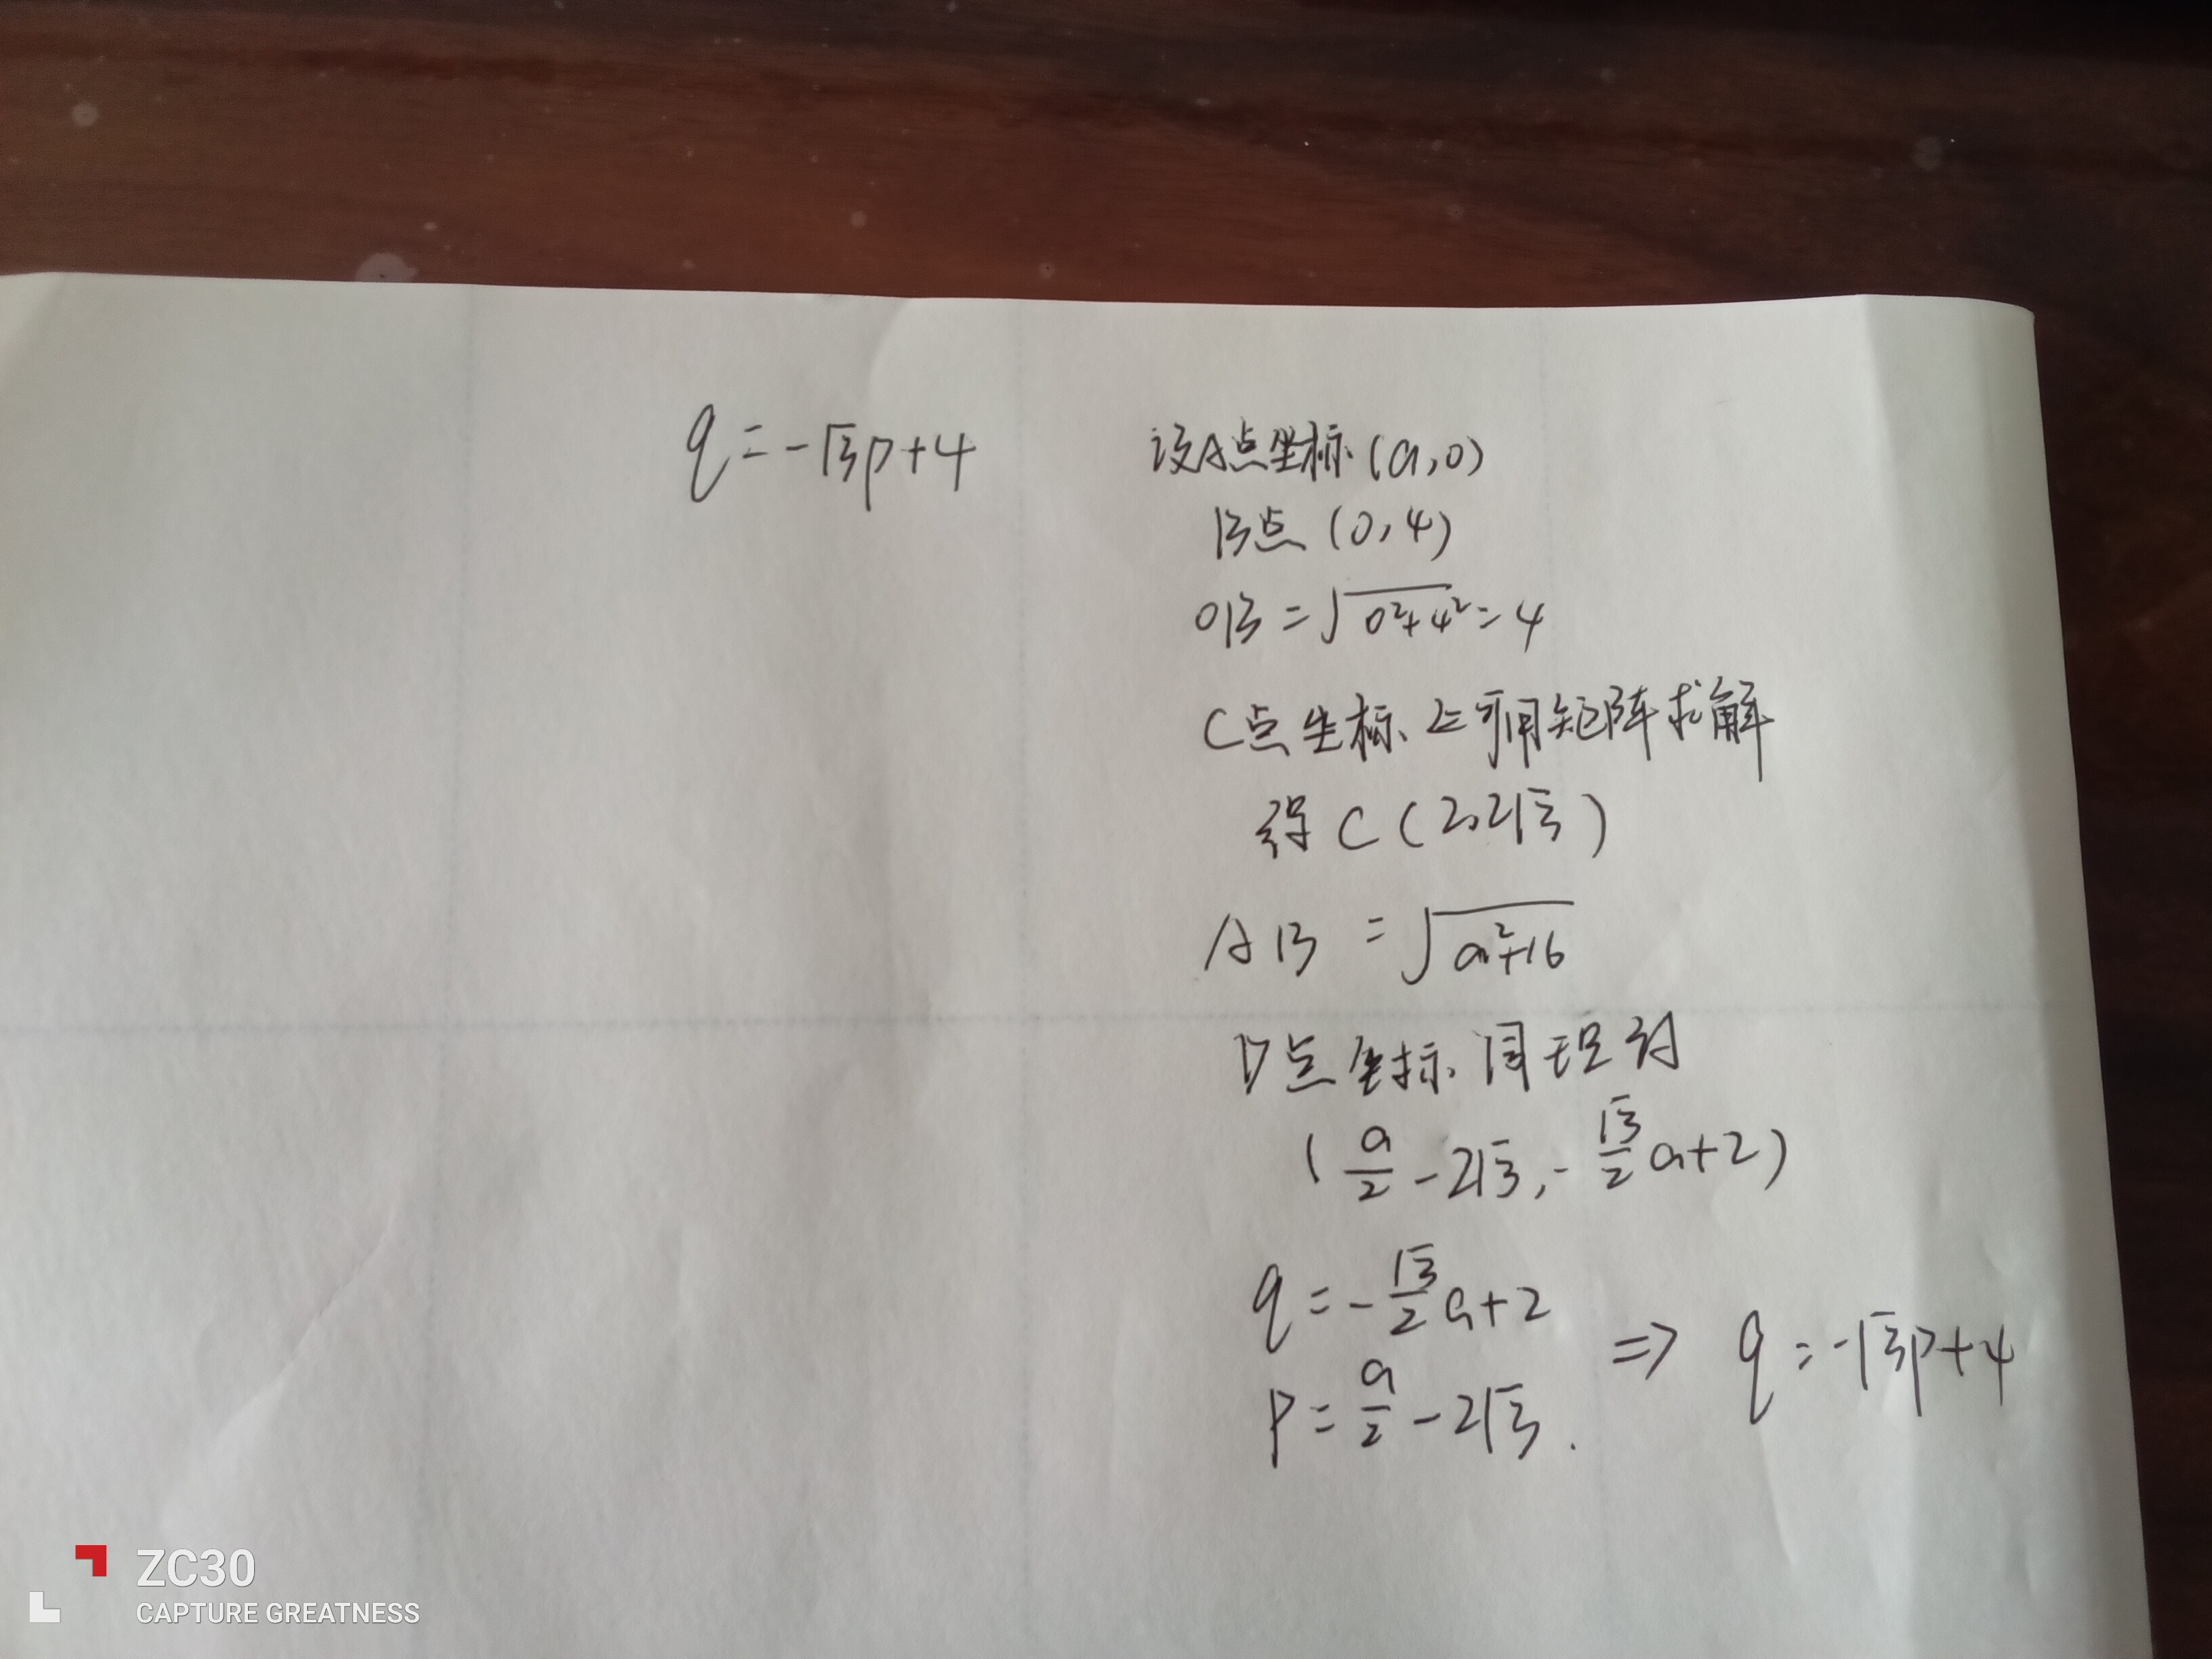 q=-√3p+4
设A点坐标(a,0)
B点(0,4)
OB=√(0²+4²)=4
C点坐标可用矩阵求解
得C(2,2√3)
AB=√(a²+16)
D点坐标同理为
(a/2-2√3,-√3/2a+2)
q=-√3/2a+2
⇒ q=-√3p+4
P=a/2-2√3.
ZC30
CAPTURE GREATNESS